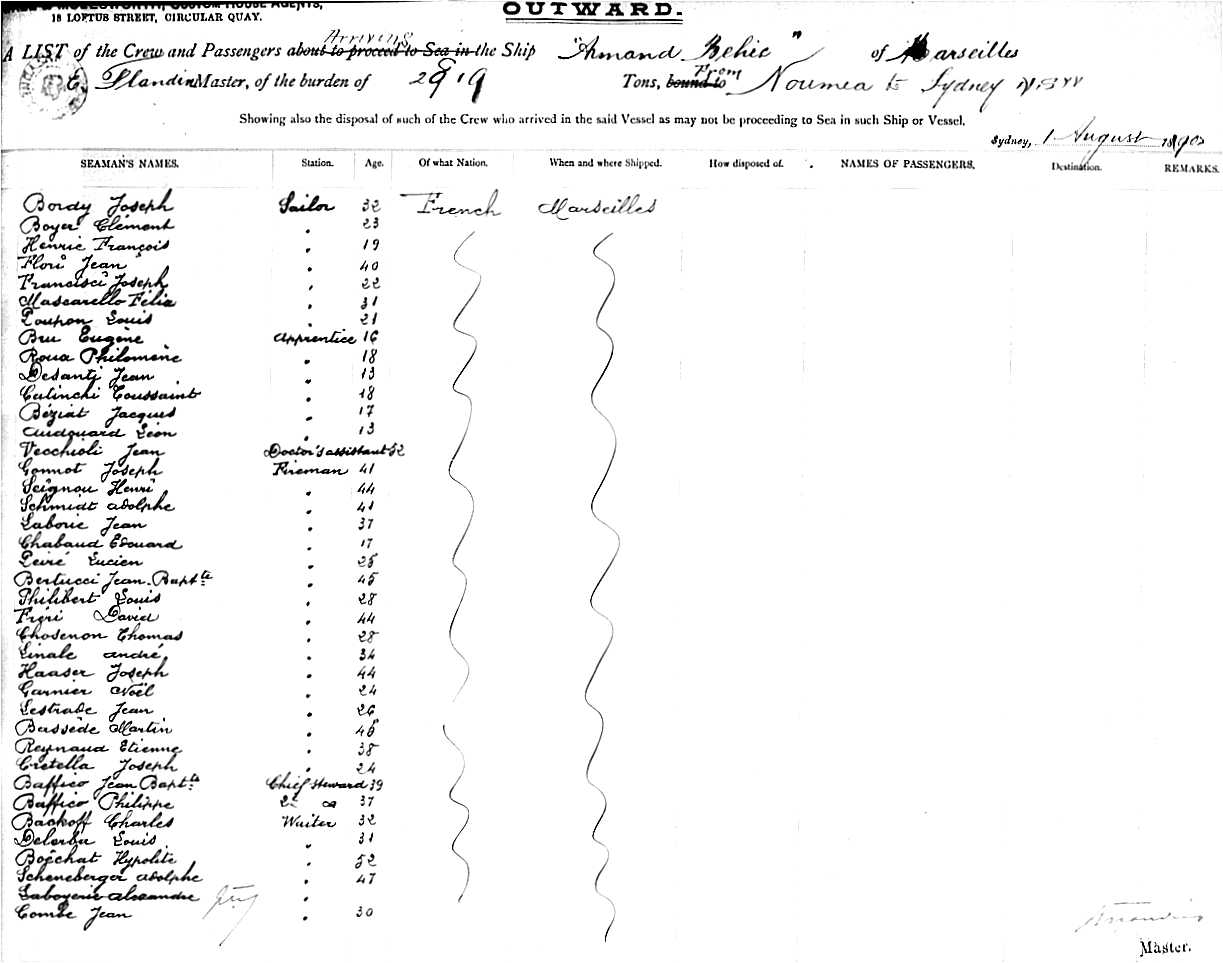 OUTWARD.
18 LOFTUS STREET, CIRCULAR QUAY.
Arriving
A LIST of the Crew and Passengers about to proceed to Sea in the Ship "Armand Behic" of Marseilles
E. Flandin Master, of the burden of Tons, bound to From Noumea to Sydney NSW
Showing also the disposal of such of the Crew who arrived in the said Vessel as may not be proceeding to Sea in such Ship or Vessel.
Sydney, 1 August
SEAMAN'S NAMES. Station. Age. Of what Nation. When and where Shipped. How disposed of. NAMES OF PASSENGERS. Destination. REMARKS.
Bordy Joseph Sailor 32 French Marseilles
Boyer Clément " 23
Henric François " 19
Flori Jean " 40
Francisci Joseph " 22
Mascarello Félix " 31
Poupon Louis " 21
Bru Eugène Apprentice 16
Roua Philomène " 18
Desanti Jean " 13
Culinchi Toussaint " 18
Béziat Jacques " 17
Audouard Léon " 13
Vecchioli Jean Doctor's assistant 52
Gonnot Joseph Fireman 41
Seignou Henri " 44
Schmidt Adolphe " 41
Laborie Jean " 37
Chabaud Edouard " 17
Peiré Lucien " 25
Bertucci Jean Bapt.te " 45
Philibert Louis " 28
Frèri David " 44
Chosenon Thomas " 28
Linale André " 34
Haaser Joseph " 44
Garnier Noël " 24
Lestrade Jean " 26
Bassède Martin " 45
Reynaud Etienne " 38
Cretella Joseph " 24
Baffico Jean Bapt.te Chief Steward 39
Baffico Philippe 2d do 37
Backoff Charles Waiter 32
Delerba Louis " 31
Boéchat Hypolite " 52
Scheneberger Adolphe " 47
Laboyerie Alexandre "
Combe Jean " 30
Master.